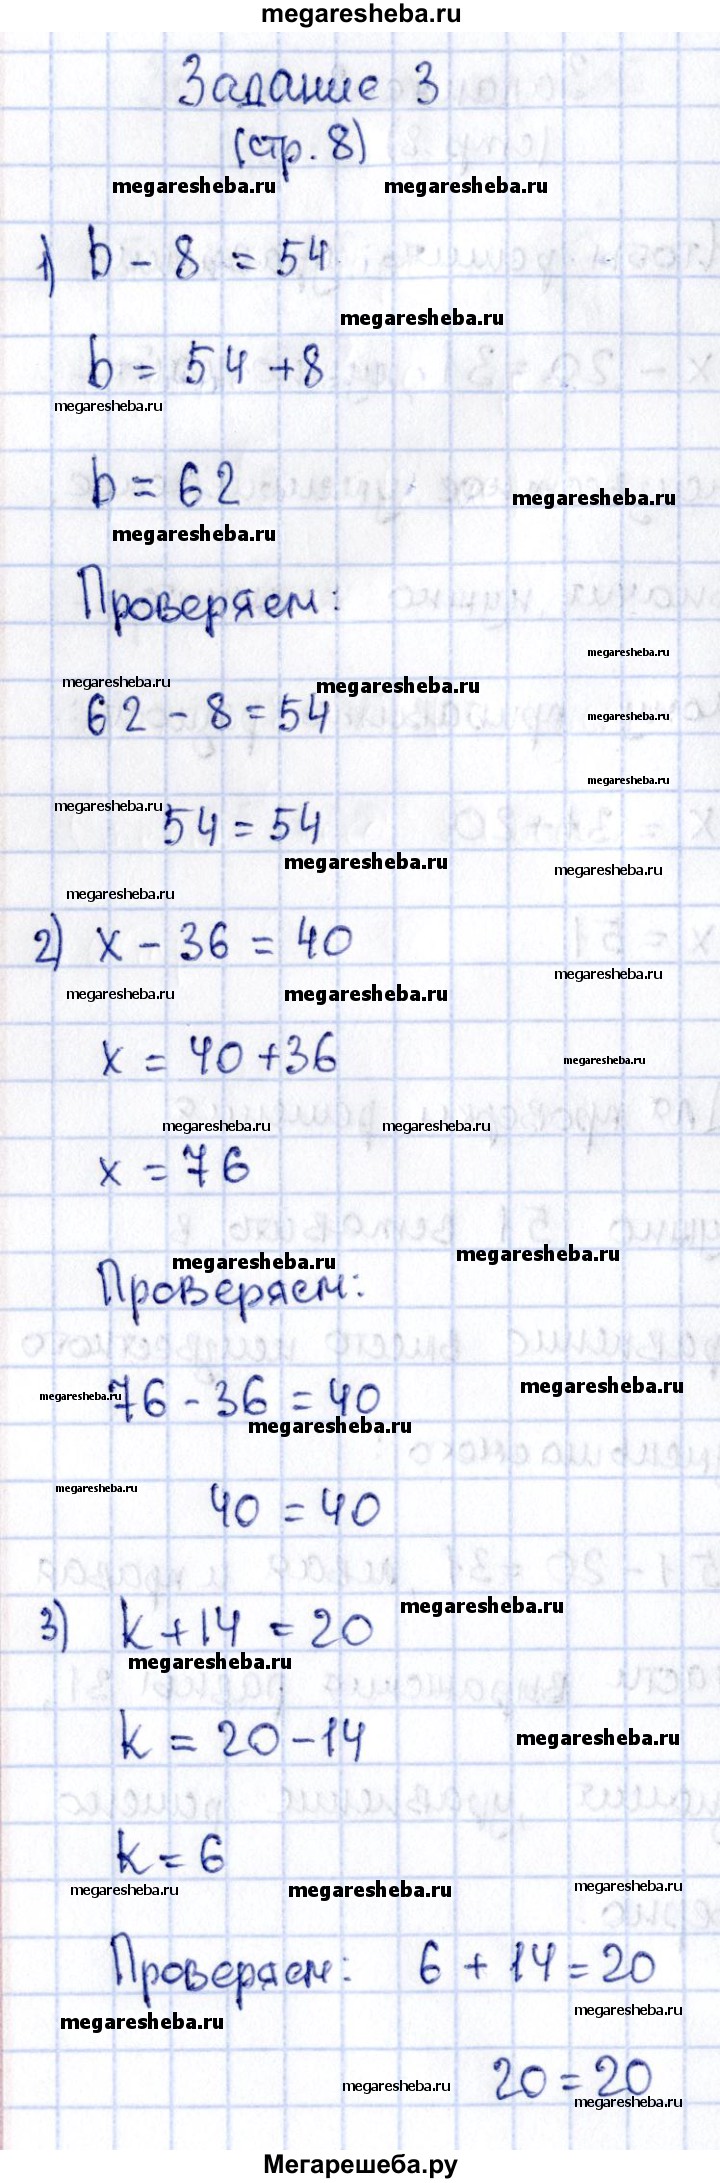 megaresheba.ru
Задание 3
(стр. 8)
megaresheba.ru megaresheba.ru
1) b - 8 = 54
megaresheba.ru
b = 54 + 8
megaresheba.ru
b = 62
megaresheba.ru
megaresheba.ru
Проверяем:
megaresheba.ru
megaresheba.ru megaresheba.ru
62 - 8 = 54
megaresheba.ru
megaresheba.ru
megaresheba.ru
54 = 54
megaresheba.ru
megaresheba.ru
megaresheba.ru
2) x - 36 = 40
megaresheba.ru
megaresheba.ru megaresheba.ru
x = 40 + 36
megaresheba.ru
megaresheba.ru megaresheba.ru
x = 76
megaresheba.ru megaresheba.ru
Проверяем:
megaresheba.ru
megaresheba.ru
76 - 36 = 40
megaresheba.ru
megaresheba.ru
40 = 40
megaresheba.ru
3) k + 14 = 20
megaresheba.ru
k = 20 - 14
megaresheba.ru
k = 6
megaresheba.ru megaresheba.ru megaresheba.ru
Проверяем: 6 + 14 = 20
megaresheba.ru
megaresheba.ru
20 = 20
megaresheba.ru
megaresheba.ru
Мегарешеба.ру